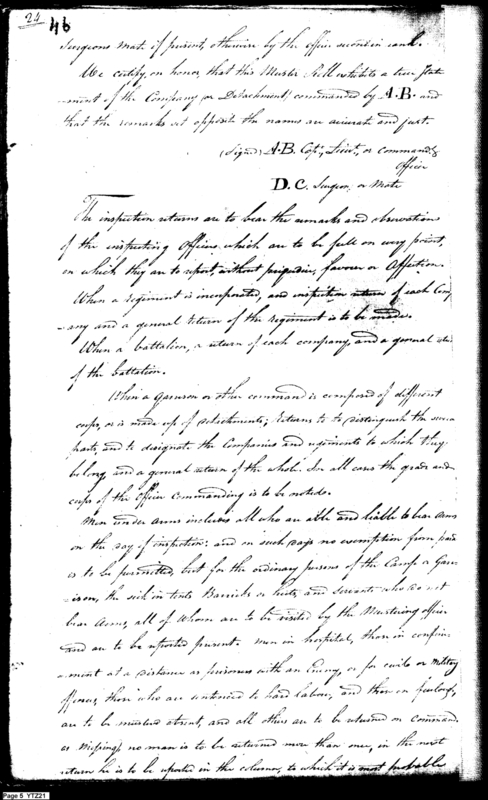 24 46
Surgeons Mate if present, otherwise by the officer second in rank.
We certify on honor that this Muster Roll exhibits a true State
-ment of the Company (or Detachment) commanded by A.B. and
that the remarks set opposite the names are accurate and just.
(Signed) A.B. Capt, Lieut, or Command'g
Officer
D.C. Surgeon, or Mate
The inspection returns are to bear the remarks and observations
of the inspecting Officers which are to be full on every point,
on which they are to report, without prejudice, favour or Affection.
When a regiment is incorporated, and inspection return of each Com
-pany and a general return of the regiment is to be made.
When a battalion, a return of each company, and a general
of the battalion.
When a Garrison or other command is composed of different
corps, or is made up of detachments; returns to to distinguish the
parts, and to designate the Companies and regiments to which they
belong and a general return of the whole. In all cases the grade and
corps of the Officer Commanding is to be noted.
Men under Arms includes all who are able and liable to bear Arms
on the day of inspection: and on such days no exemption from
is to be permitted, but for the ordinary persons of the Camp or Garr
-ison, the sick in tents Barracks or huts, and servants who do not
bear Arms, all of whom are to be visited by the Mustering officer
and are to be reported present. Men in hospital, those in confin-
-ment at a distance as prisoners with an Enemy, or for civil or Military
offences, those who are sentenced to hard labour, and those on furlough,
are to be mustered absent, and all others are to be returned on command
or Missing, no man is to be returned more than once, in the
return he is to be reported in the column, to which it is most probable
Page 5 YTZ21